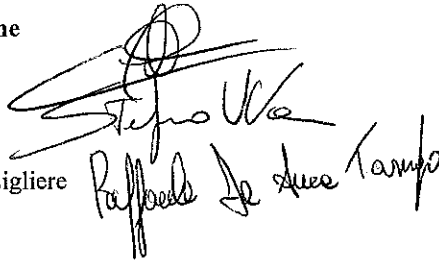 ne
Stefano
sigliere Raffaele De Luca Tamajo